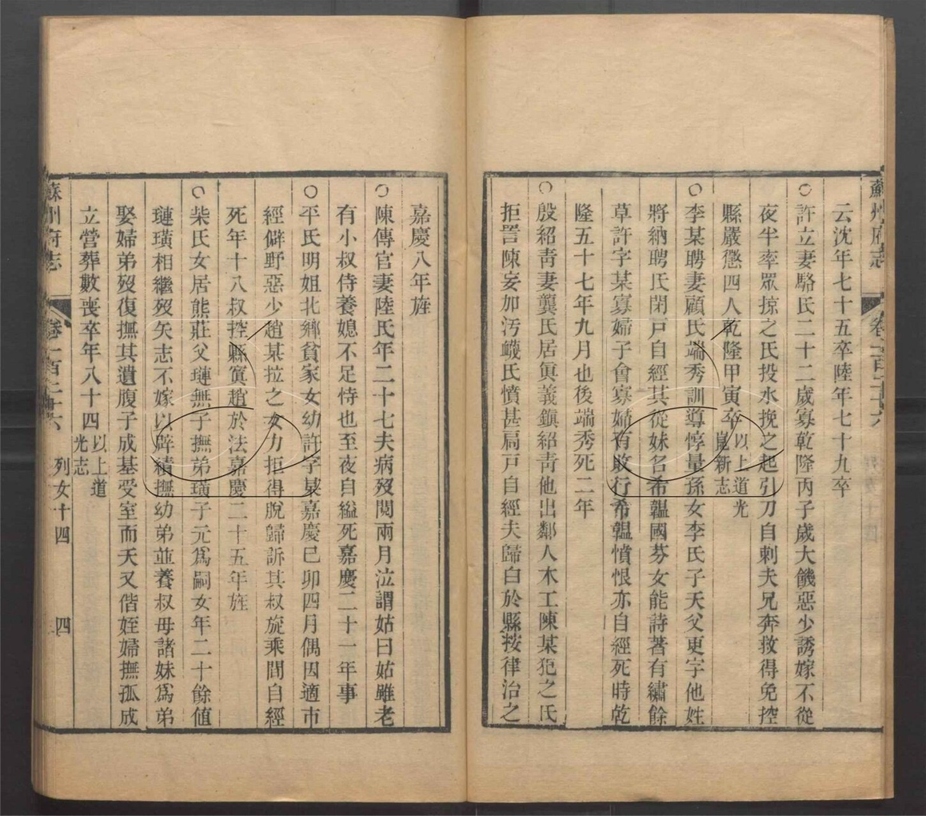 蘇州府志
卷一百二十六
云沈年七十五卒陸年七十九卒
○許立妻駱氏二十二歲寡乾隆丙子歲大饑惡少誘嫁不從
夜半率眾掠之氏投水挽之起引刀自刺夫兄奔救得免控
縣嚴懲四人乾隆甲寅卒以上道光
崑新志
○李某聘妻顧氏端秀訓導惇量孫女李氏子夭父更字他姓
將納聘氏閉戸自經其從妹名希韞國芬女能詩著有繡餘
草許字某寡婦子會寡婦有敗行希韞憤恨亦自經死時乾
隆五十七年九月也後端秀死二年
○殷紹青妻龔氏居眞義鎭紹青他出鄰人木工陳某犯之氏
拒詈陳妄加汚衊氏憤甚扃戸自經夫歸白於縣按律治之
嘉慶八年旌
○陳傳官妻陸氏年二十七夫病歿閱兩月泣謂姑曰姑雖老
有小叔侍養媳不足恃也至夜自縊死嘉慶二十一年事
○平氏明姐北鄉貧家女幼許字某嘉慶己卯四月偶因適市
經僻野惡少趙某拉之女力拒得脫歸訴其叔旋乘間自經
死年十八叔控縣寘趙於法嘉慶二十五年旌
○柴氏女居熊莊父璉無子撫弟璜子元爲嗣女年二十餘值
璉璜相繼歿矢志不嫁以辟積撫幼弟並養叔母諸妹爲弟
娶婦弟歿復撫其遺腹子成基受室而夭又偕姪婦撫孤成
立營葬數喪卒年八十四以上道
光志
蘇州府志
卷一百二十六
列女十四
四